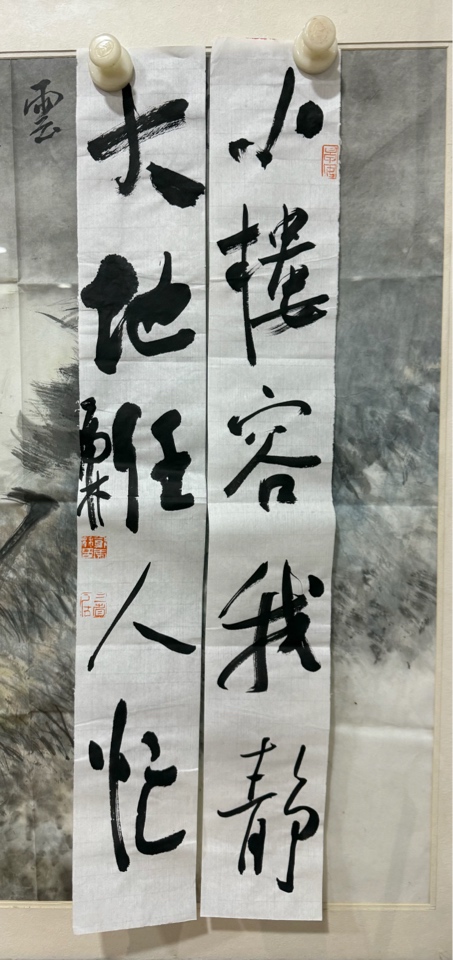 小樓容我靜
大地任人忙
雲